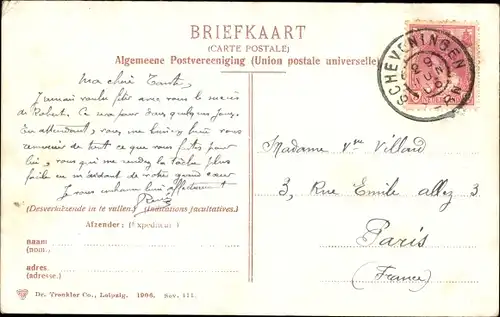 BRIEFKAART
(CARTE POSTALE)
Algemeene Postvereeniging (Union postale universelle)
SCHEVENINGEN
Ma chère Tante,
J'aurais voulu fêter avec vous le succès
de Robert. Ce sera pour dans quelques jours.
En attendant, vous me laisserez bien vous
remercier de tout ce que vous faites pour
lui, vous qui me rendez la tâche plus
facile en m'aidant de votre grand cœur
Je vous embrasse bien affectueusement
(Desverkiezende in te vullen.) (Indications facultatives.)
Afzender: (Expéditeur)
naam
(nom.)
adres.
(adresse.)
Dr. Trenkler Co., Leipzig. 1906. Sev. 111.
Madame Vve Villard
3, Rue Emile Allez 3
Paris
(France)